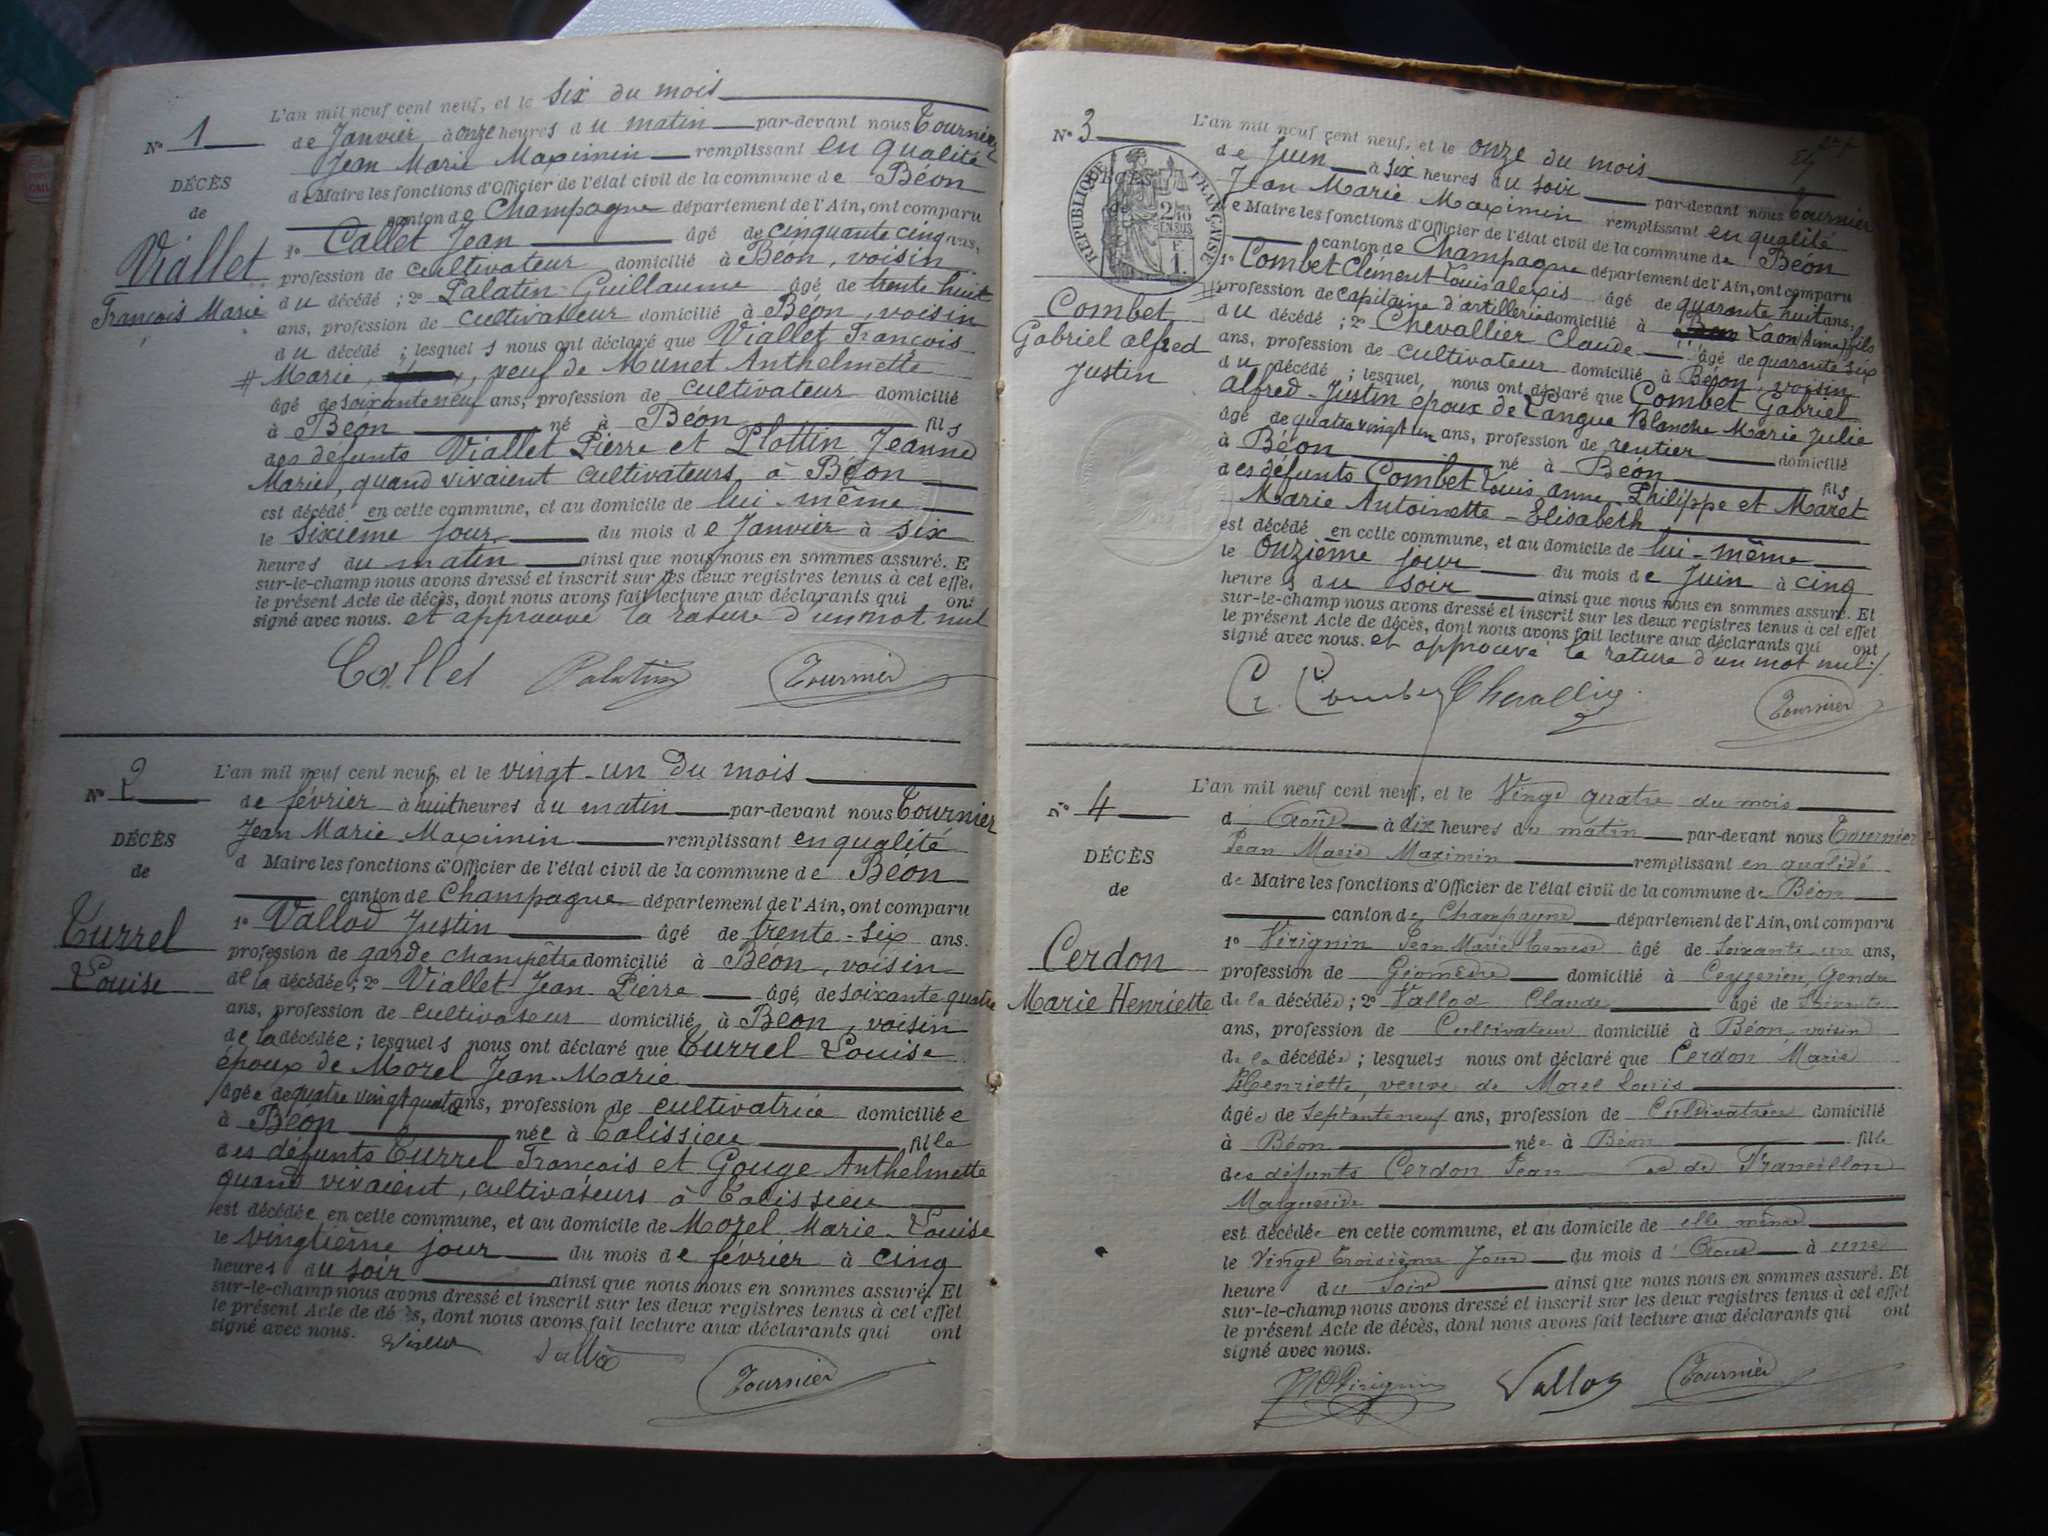 L'an mil neuf cent neuf, et le six du mois
N° 1
de Janvier à onze heures du matin par-devant nous Tournier
Jean Marie Maximin remplissant en qualité
DÉCÈS
de Maire les fonctions d'Officier de l'état civil de la commune de Béon
de
canton de Champagne département de l'Ain, ont comparu
1° Callet Jean âgé de cinquante cinq ans,
Viallet
profession de cultivateur domicilié à Béon, voisin
François Marie
du décédé ; 2° Palatin Guillaume âgé de trente huit
ans, profession de cultivateur domicilié à Béon, voisin
du décédé ; lesquels nous ont déclaré que Viallet François
Marie, veuf de Munet Anthelmette
âgé de soixante neuf ans, profession de cultivateur domicilié
à Béon né à Béon fils
des défunts Viallet Pierre et Plottin Jeanne
Marie, quand vivaient cultivateurs, à Béon
est décédé en cette commune, et au domicile de lui-même
le sixième jour du mois de Janvier à six
heures du matin ainsi que nous nous en sommes assuré. E
sur-le-champ nous avons dressé et inscrit sur les deux registres tenus à cet effe
le présent Acte de décès, dont nous avons fait lecture aux déclarants qui ont
signé avec nous. et approuvé la rature d'un mot nul
Callet Palatin Tournier
L'an mil neuf cent neuf, et le vingt-un du mois
N° 2
de février à huit heures du matin par-devant nous Tournier
Jean Marie Maximin remplissant en qualité
DÉCÈS
d Maire les fonctions d'Officier de l'état civil de la commune de Béon
de
canton de Champagne département de l'Ain, ont comparu
1° Vallod Justin âgé de trente-six ans.
Turrel
profession de garde champêtre domicilié à Béon, voisin
Louise
de la décédée ; 2° Viallet Jean Pierre âgé de soixante quatre
ans, profession de cultivateur domicilié à Béon, voisin
de la décédée ; lesquels nous ont déclaré que Turrel Louise
époux de Morel Jean-Marie
âgée de quatre vingt quatre ans, profession de cultivatrice domiciliée
à Béon née à Talissieu fille
des défunts Turrel François et Gouge Anthelmette
quand vivaient, cultivateurs à Talissieu
est décédée en cette commune, et au domicile de Morel Marie-Louise
le vingtième jour du mois de février à cinq
heures du soir ainsi que nous nous en sommes assuré. Et
sur-le-champ nous avons dressé et inscrit sur les deux registres tenus à cet effet
le présent Acte de décès, dont nous avons fait lecture aux déclarants qui ont
signé avec nous.
Tournier
L'an mil neuf cent neuf, et le onze du mois
N° 3
de Juin à six heures du soir par-devant nous Tournier
Jean Marie Maximin remplissant en qualité
RÉPUBLIQUE FRANÇAISE
e Maire les fonctions d'Officier de l'état civil de la commune de Béon
canton de Champagne département de l'Ain, ont comparu
1° Combet Clément Louis alexis âgé de quarante huit ans,
profession de capitaine d'artillerie domicilié à Laon (Aisne) fils
Combet
du décédé ; 2° Chevallier Claude âgé de quarante six
Gabriel alfred
ans, profession de cultivateur domicilié à Béon, voisin
Justin
du décédé ; lesquel nous ont déclaré que Combet Gabriel
alfred-Justin époux de Langue Blanche Marie Julie
âgé de quatre vingt un ans, profession de rentier domicilié
à Béon né à Béon fils
des défunts Combet Louis anne, Philippe et Maret
Marie Antoinette-Elisabeth
est décédé en cette commune, et au domicile de lui-même
le Onzième jour du mois de Juin à cinq
heures du soir ainsi que nous nous en sommes assuré. Et
sur-le-champ nous avons dressé et inscrit sur les deux registres tenus à cet effet
le présent Acte de décès, dont nous avons fait lecture aux déclarants qui ont
signé avec nous. et approuvé la rature d'un mot nul
C. Combet Chevallier Tournier
L'an mil neuf cent neuf, et le Vingt quatre du mois
N° 4
d'Août à dix heures du matin par-devant nous Tournier
Jean Marie Maximin remplissant en qualité
DÉCÈS
de Maire les fonctions d'Officier de l'état civil de la commune de Béon
de
canton de Champagne département de l'Ain, ont comparu
1° Virignin Jean Marie Ernest âgé de soixante un ans,
Cerdon
profession de Géomètre domicilié à Ceyzerieu, Gendre
Marie Henriette
de la décédée ; 2° Vallod Claude âgé de soixante
ans, profession de Cultivateur domicilié à Béon, voisin
de la décédée ; lesquels nous ont déclaré que Cerdon Marie
Henriette, veuve de Morel Louis
âgée de septante neuf ans, profession de Cultivatrice domicilié
à Béon née à Béon fille
des défunts Cerdon Jean et de Traneillon
Marguerite
est décédée en cette commune, et au domicile de elle même
le Vingt Troisième Jour du mois d'Août à une
heure du Soir ainsi que nous nous en sommes assuré. Et
sur-le-champ nous avons dressé et inscrit sur les deux registres tenus à cet effet
le présent Acte de décès, dont nous avons fait lecture aux déclarants qui ont
signé avec nous.
Virignin Vallod Tournier